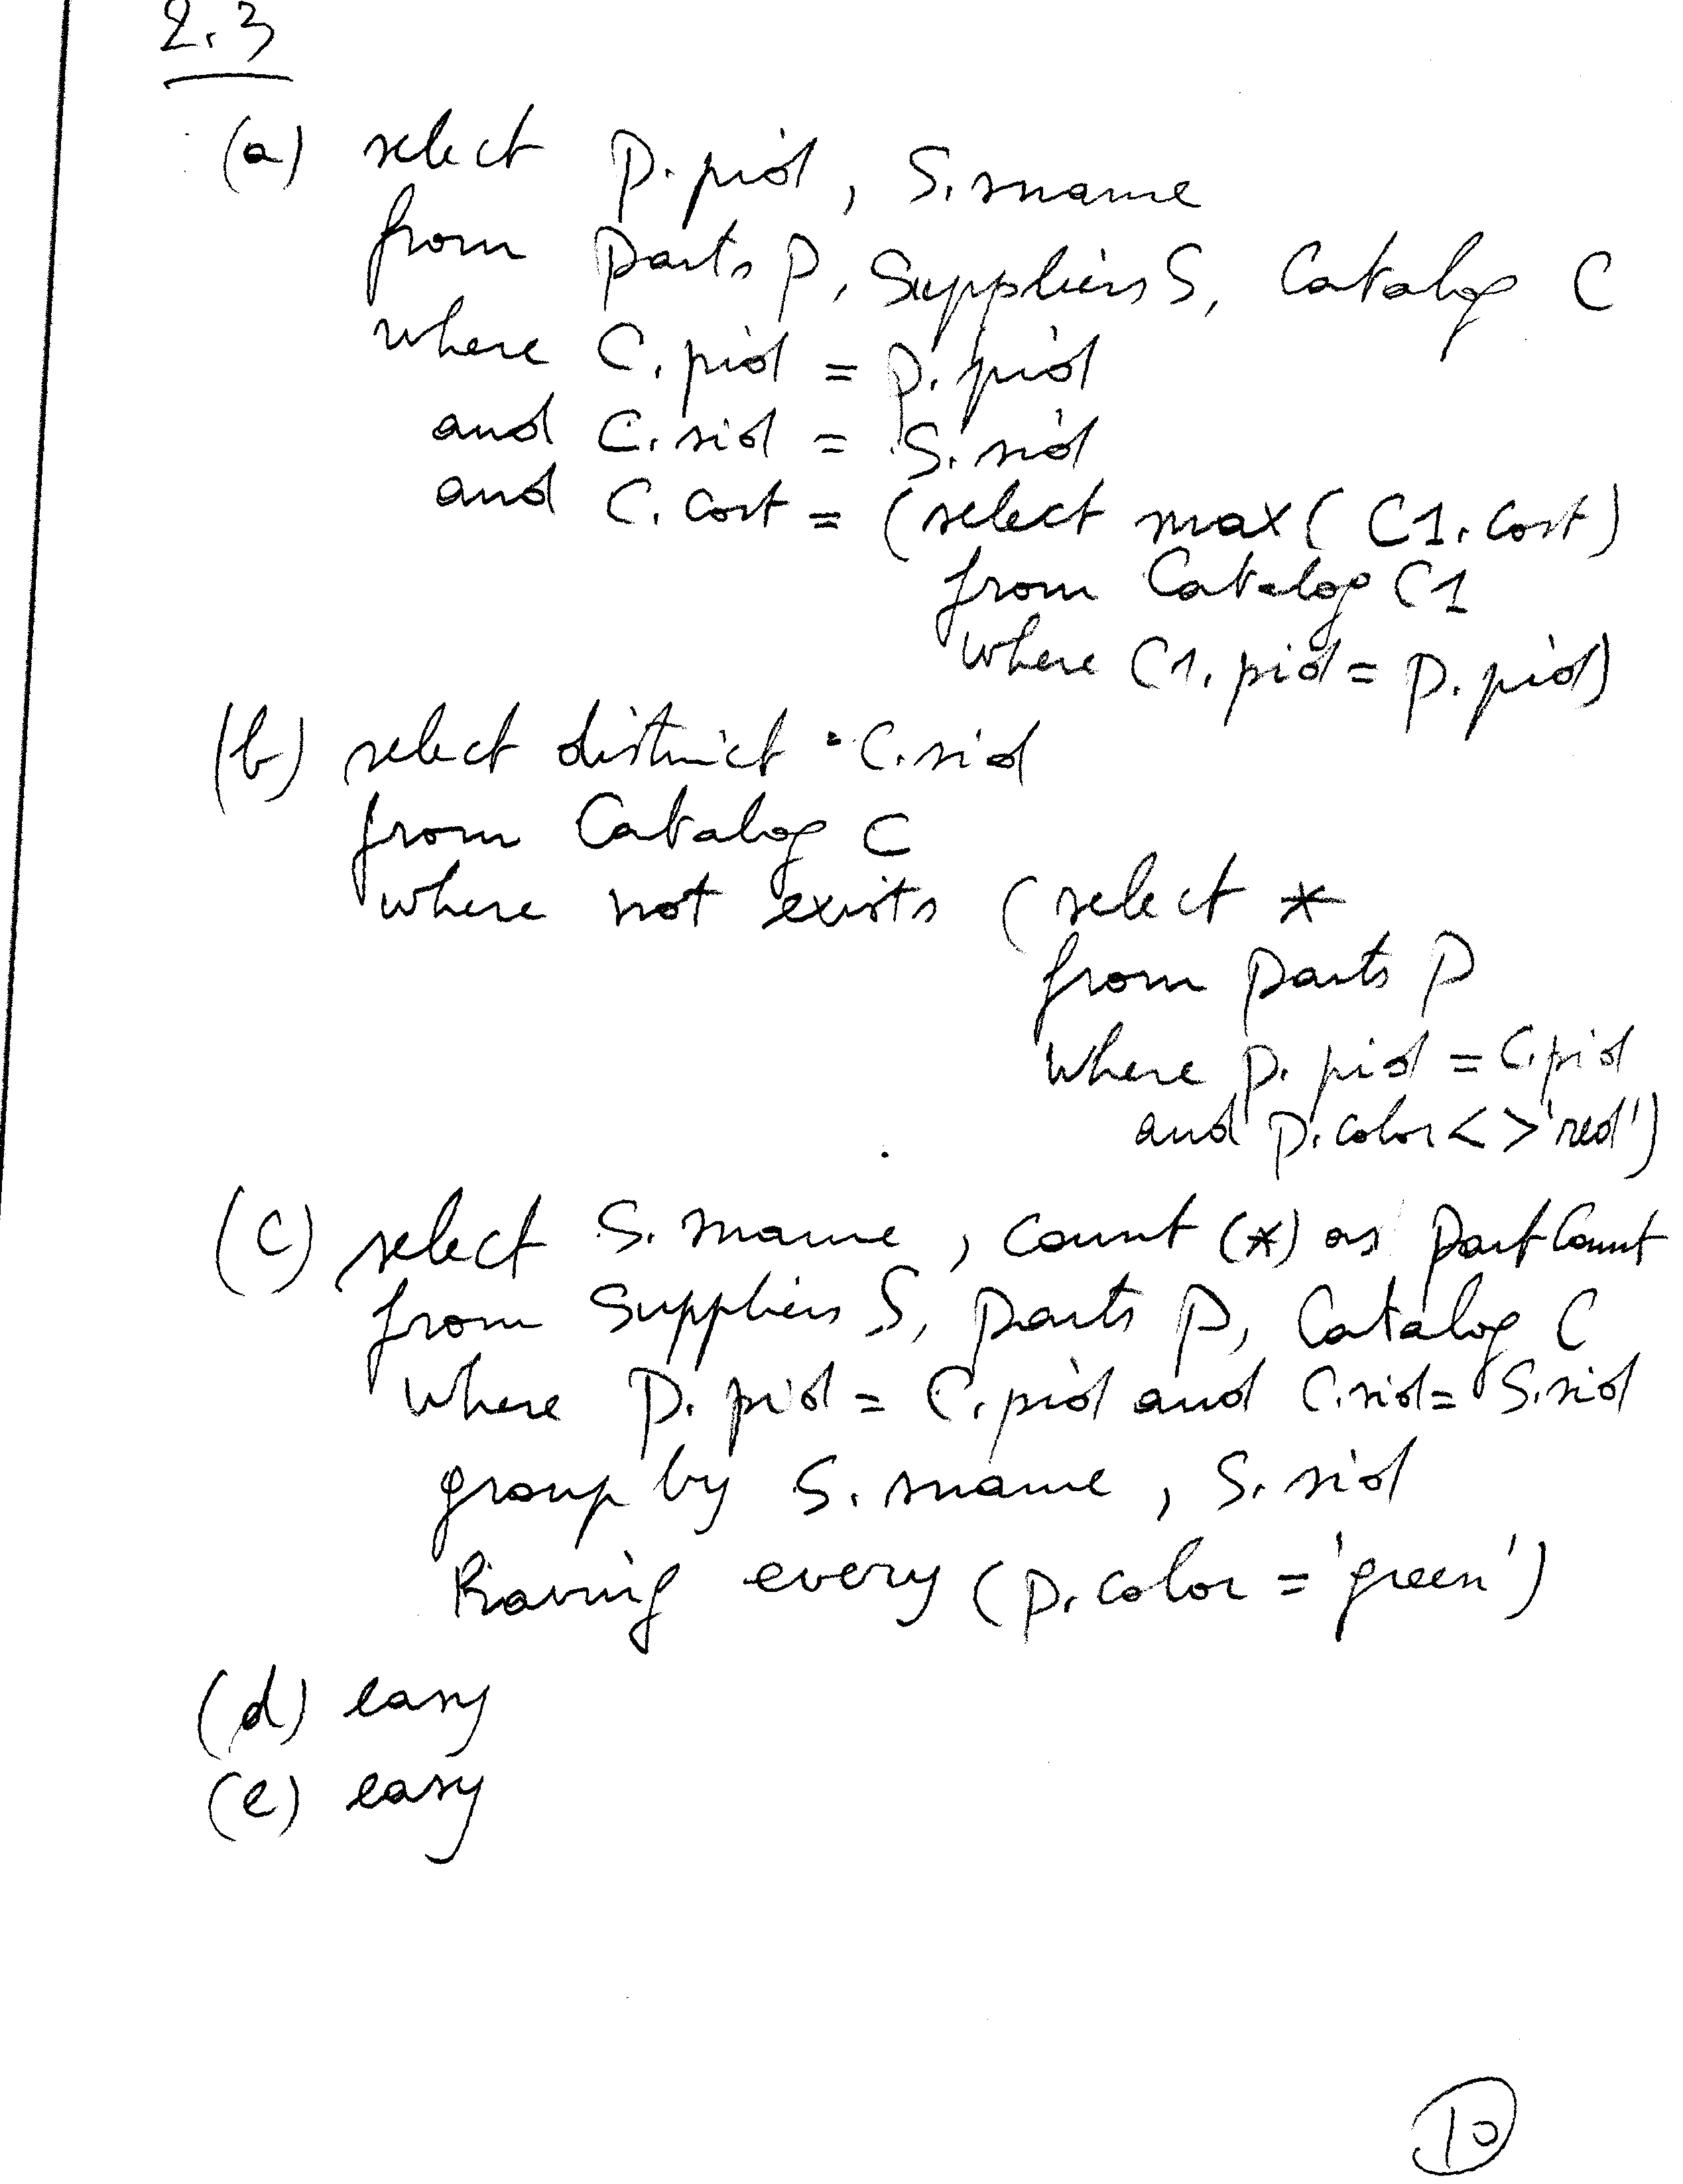 2.3
(a) select P.pid, S.sname
from Parts P, Suppliers S, Catalog C
where C.pid = P.pid
and C.sid = S.sid
and C.cost = (select max( C1.cost)
from Catalog C1
where C1.pid = P.pid)
(b) select distinct C.sid
from Catalog C
where not exists (select *
from Parts P
where P.pid = C.pid
and P.color <> 'red')
(c) select S.sname, count (*) as PartCount
from Suppliers S, Parts P, Catalog C
where P.pid = C.pid and C.sid = S.sid
group by S.sname, S.sid
having every (P.color = 'green')
(d) easy
(e) easy
10